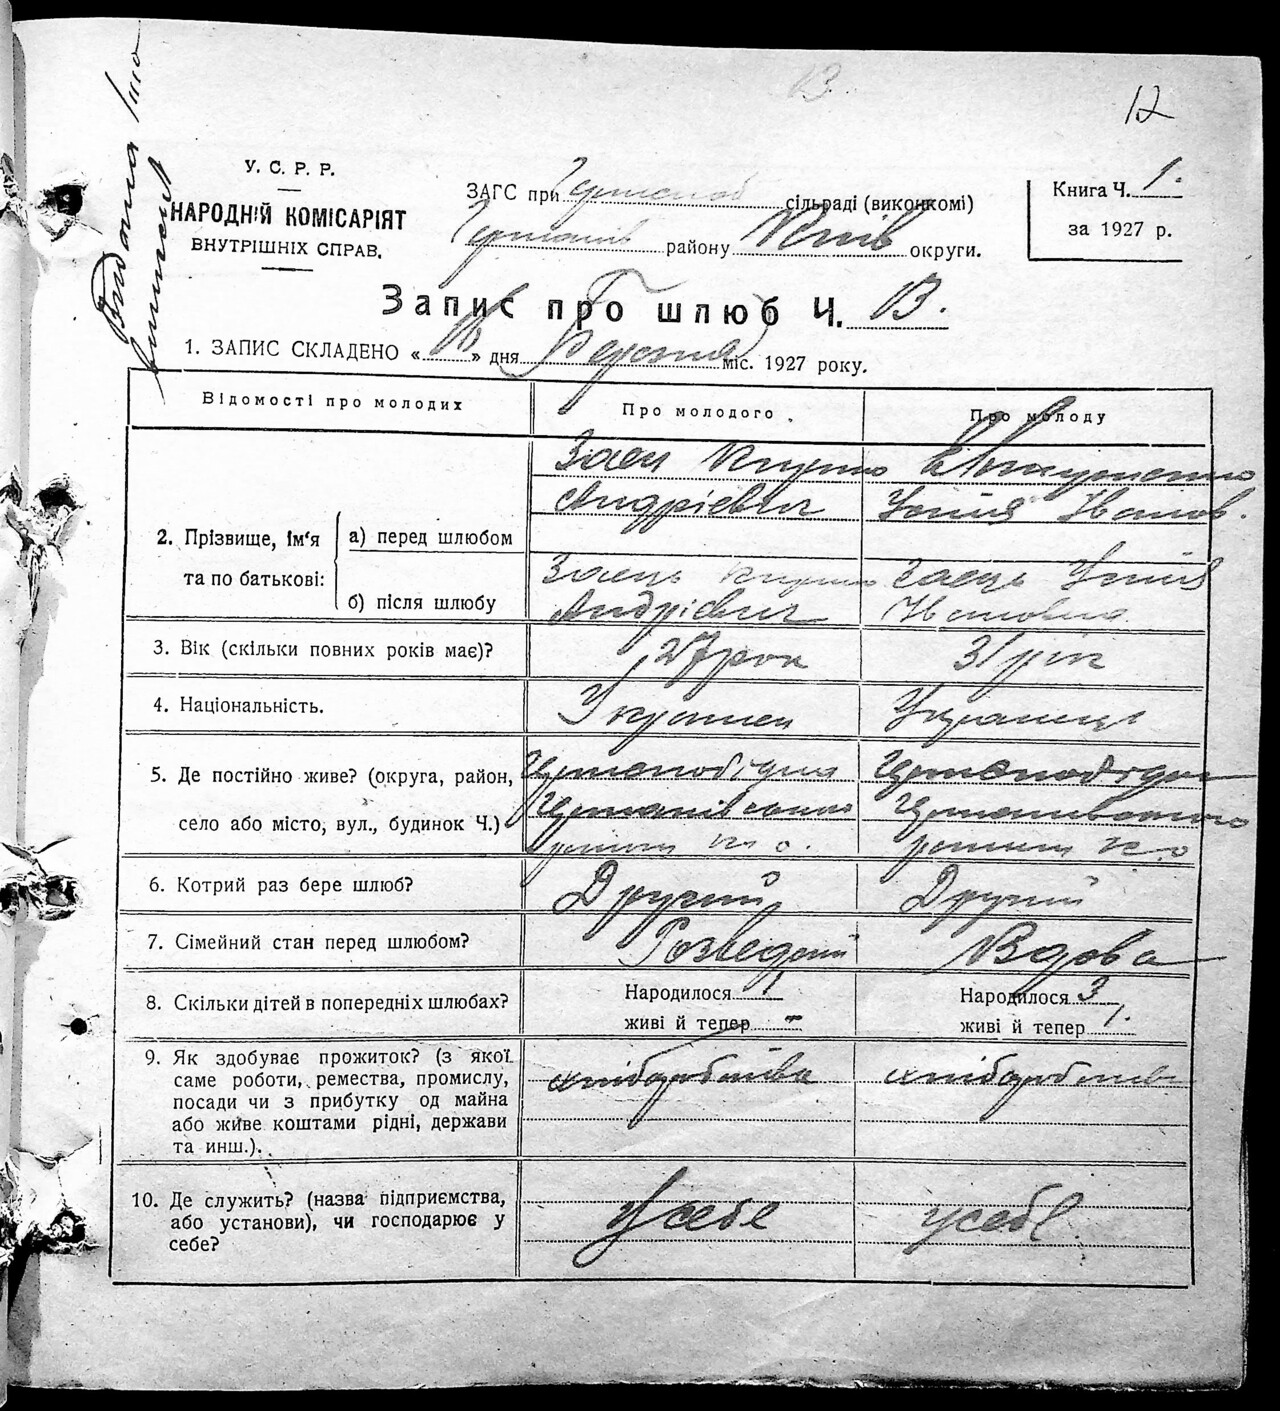 12
13.
Видана
виписка
У. С. Р. Р.
НАРОДНІЙ КОМІСАРІЯТ
ВНУТРІШНІХ СПРАВ.
ЗАГС при сільраді (виконкомі)
району Київ округи.
Книга Ч. 1.
за 1927 р.
Запис про шлюб Ч. 13.
1. ЗАПИС СКЛАДЕНО « » дня Березня міс. 1927 року.
Відомості про молодих
Про молодого
Про молоду
2. Прізвище, ім'я та по батькові:
а) перед шлюбом
Заєц Кирило
Андрієвич
Іванов.
б) після шлюбу
Заєць Кирило
Андрієвич
Заєць Уліія
Івановна
3. Вік (скільки повних років має)?
27 рок
31 рік
4. Національність.
Українец
Українець
5. Де постійно живе? (округа, район,
село або місто, вул., будинок Ч.)
району К. о.
району К. о
6. Котрий раз бере шлюб?
Другий
Другий
7. Сімейний стан перед шлюбом?
Розведений
Вдова
8. Скільки дітей в попередніх шлюбах?
Народилося 1
живі й тепер -
Народилося 3
живі й тепер 1.
9. Як здобуває прожиток? (з якої
саме роботи, ремества, промислу,
посади чи з прибутку од майна
або живе коштами рідні, держави
та инш.).
хліборобства
хліборобства
10. Де служить? (назва підприємства,
або установи), чи господарює у
себе?
У себе
у себе.